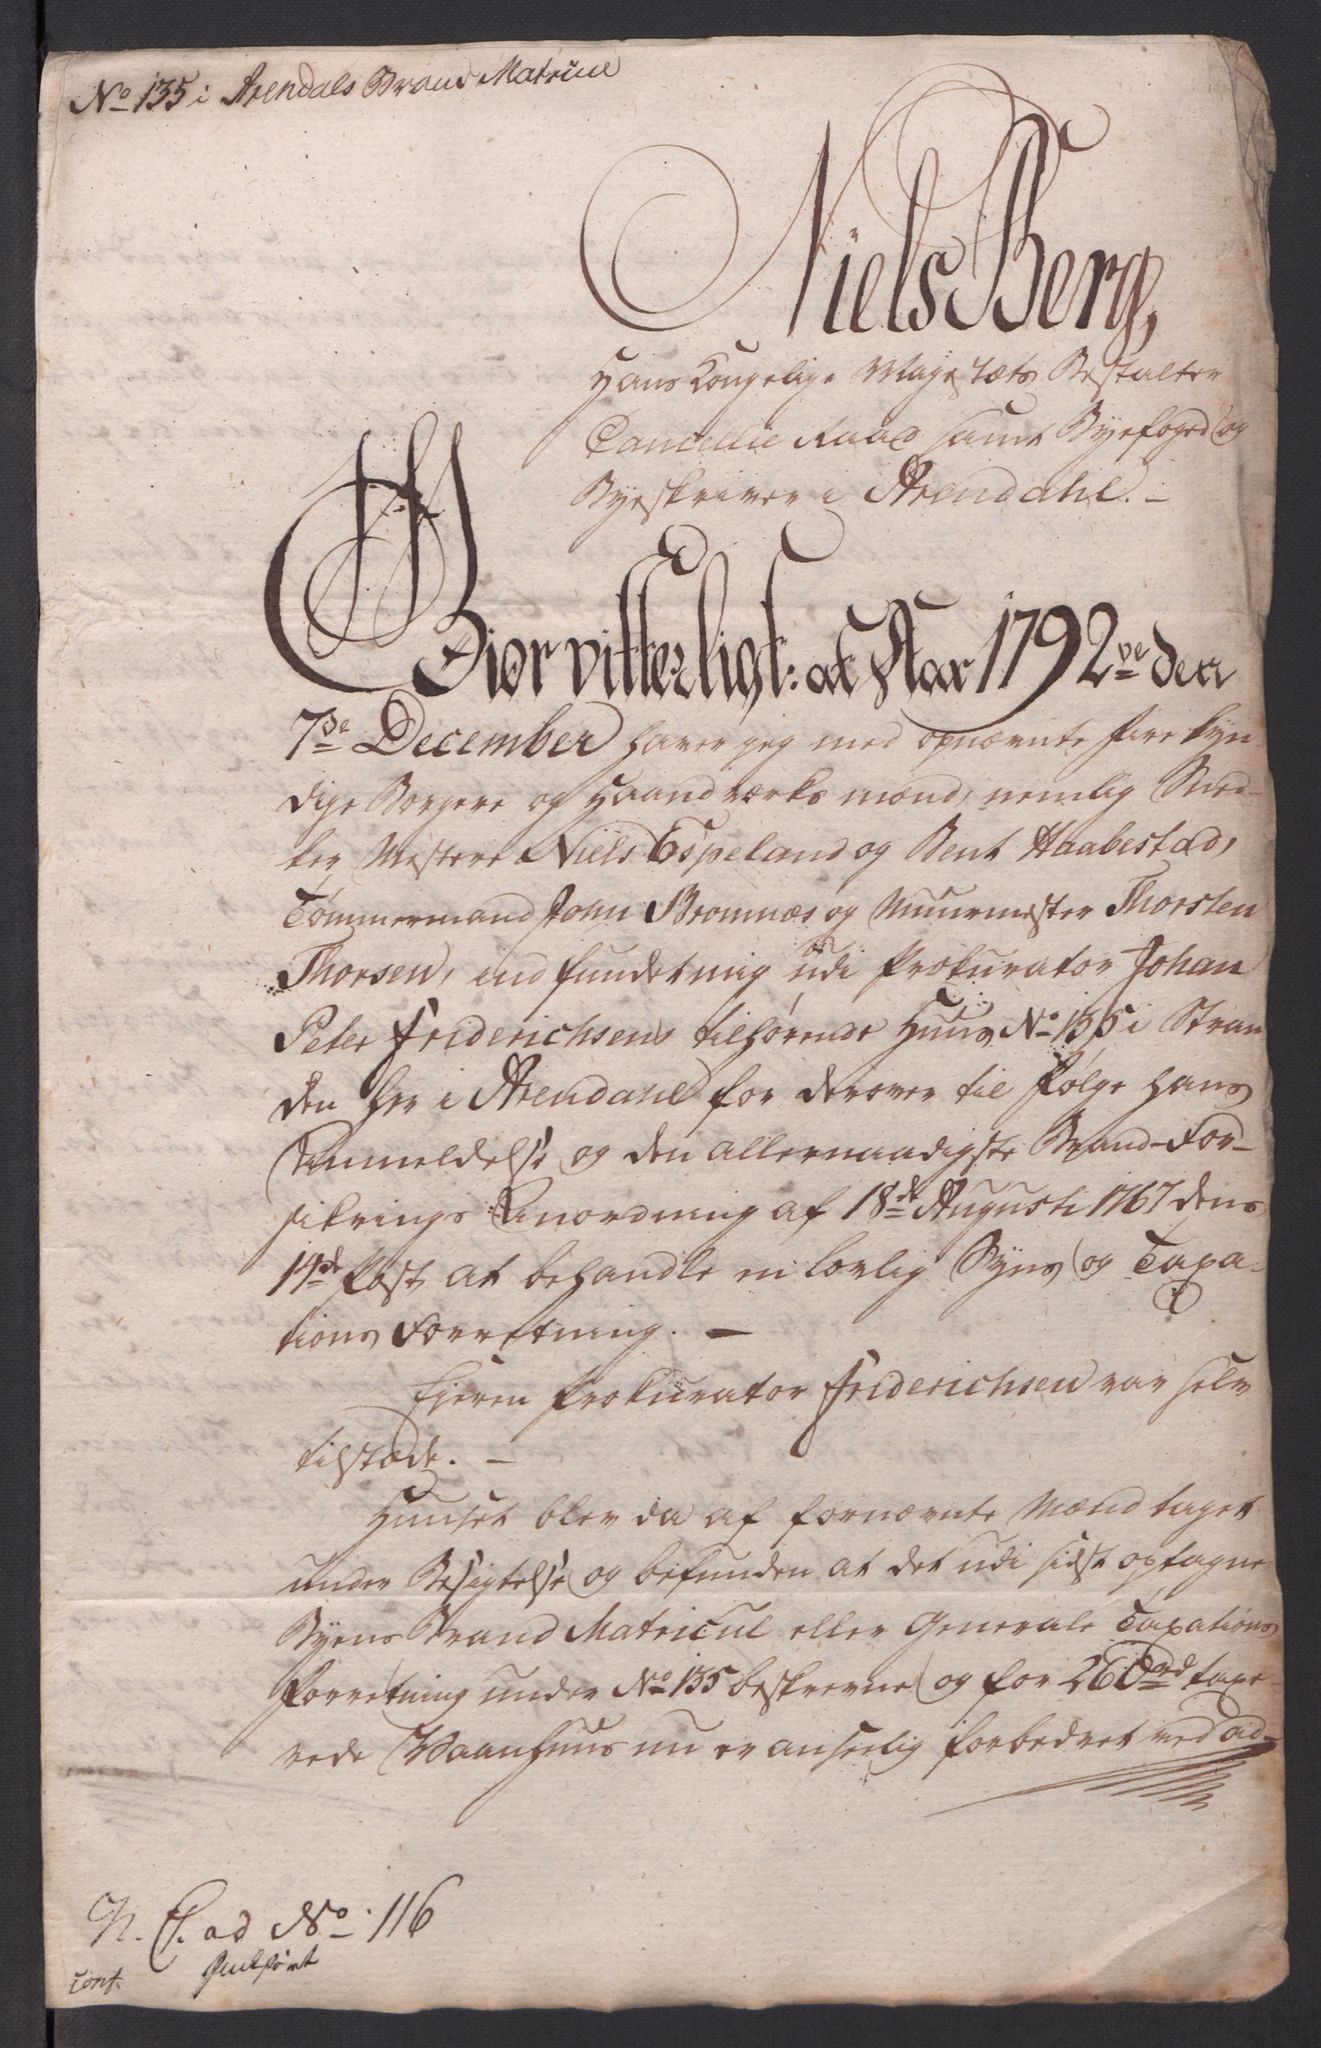 No 135 i Arendals Brand Matricul
Niels Berg,
Hans Kongelige Majestæts Bestalter
Cancellie Raad samt Byefoged og
Byeskriver i Arendahl. –
Giør vitterligt: at Aar 1792de den
7de December haver jeg med opnævnte fire kyn-
dige Borgere og Haandværks mænd, nemlig Sned-
ker Mestere Niels Espeland og Bent Haabestad,
Tømmermand John Bromnæs og Muurmester Thorsten
Thorsen, indfundet mig udi Prokurator Johan
Peter Friderichsens tilhørende Huus No 135 i Stran
den her i Arendahl for derover til Følge hans
Anmeldelse og den allernaadigste Brand-For-
sikrings Anordning af 18de Augusti 1767 dens
14de Post at behandle en lovlig Syns og Taxa-
tions Forretning. –
Eieren Prokurator Friderichsen var selv
tilstæde. –
Huuset blev da af fornævnte Mænd taget
under Besigtelse og befunden at det udi sidst optagne
Byens Brand Matricul eller Generale Taxations
Forretning under No 135 beskrevne og for 260 rd taxe-
rede Vaanhuus nu er anseelig forbedret ved ad-
N. C. ad No. 116
Conf.
Indført